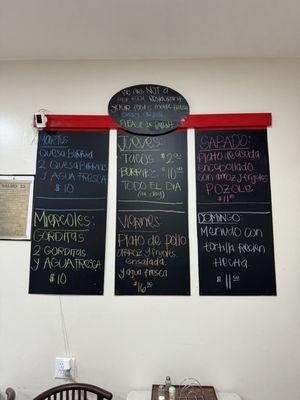 We are NOT a
fast food restaurant
your food is made fresh
every order
Please be Patient
Martes:
Quesa Birria
2 Quesabirrias
y agua fresca
$10
Miercoles:
Gorditas
2 Gorditas
y Agua fresca
$10
Jueves
Tacos $2
Burritos $10
todo el dia
Viernes
Plato de pollo
arroz y frijoles
ensalada
y agua fresca
$16
SABADO
Plato de
encebollado
con arroz frijoles
POZOLE
$11
DOMINGO
Menudo con
tortilla recien
Hecha
$11